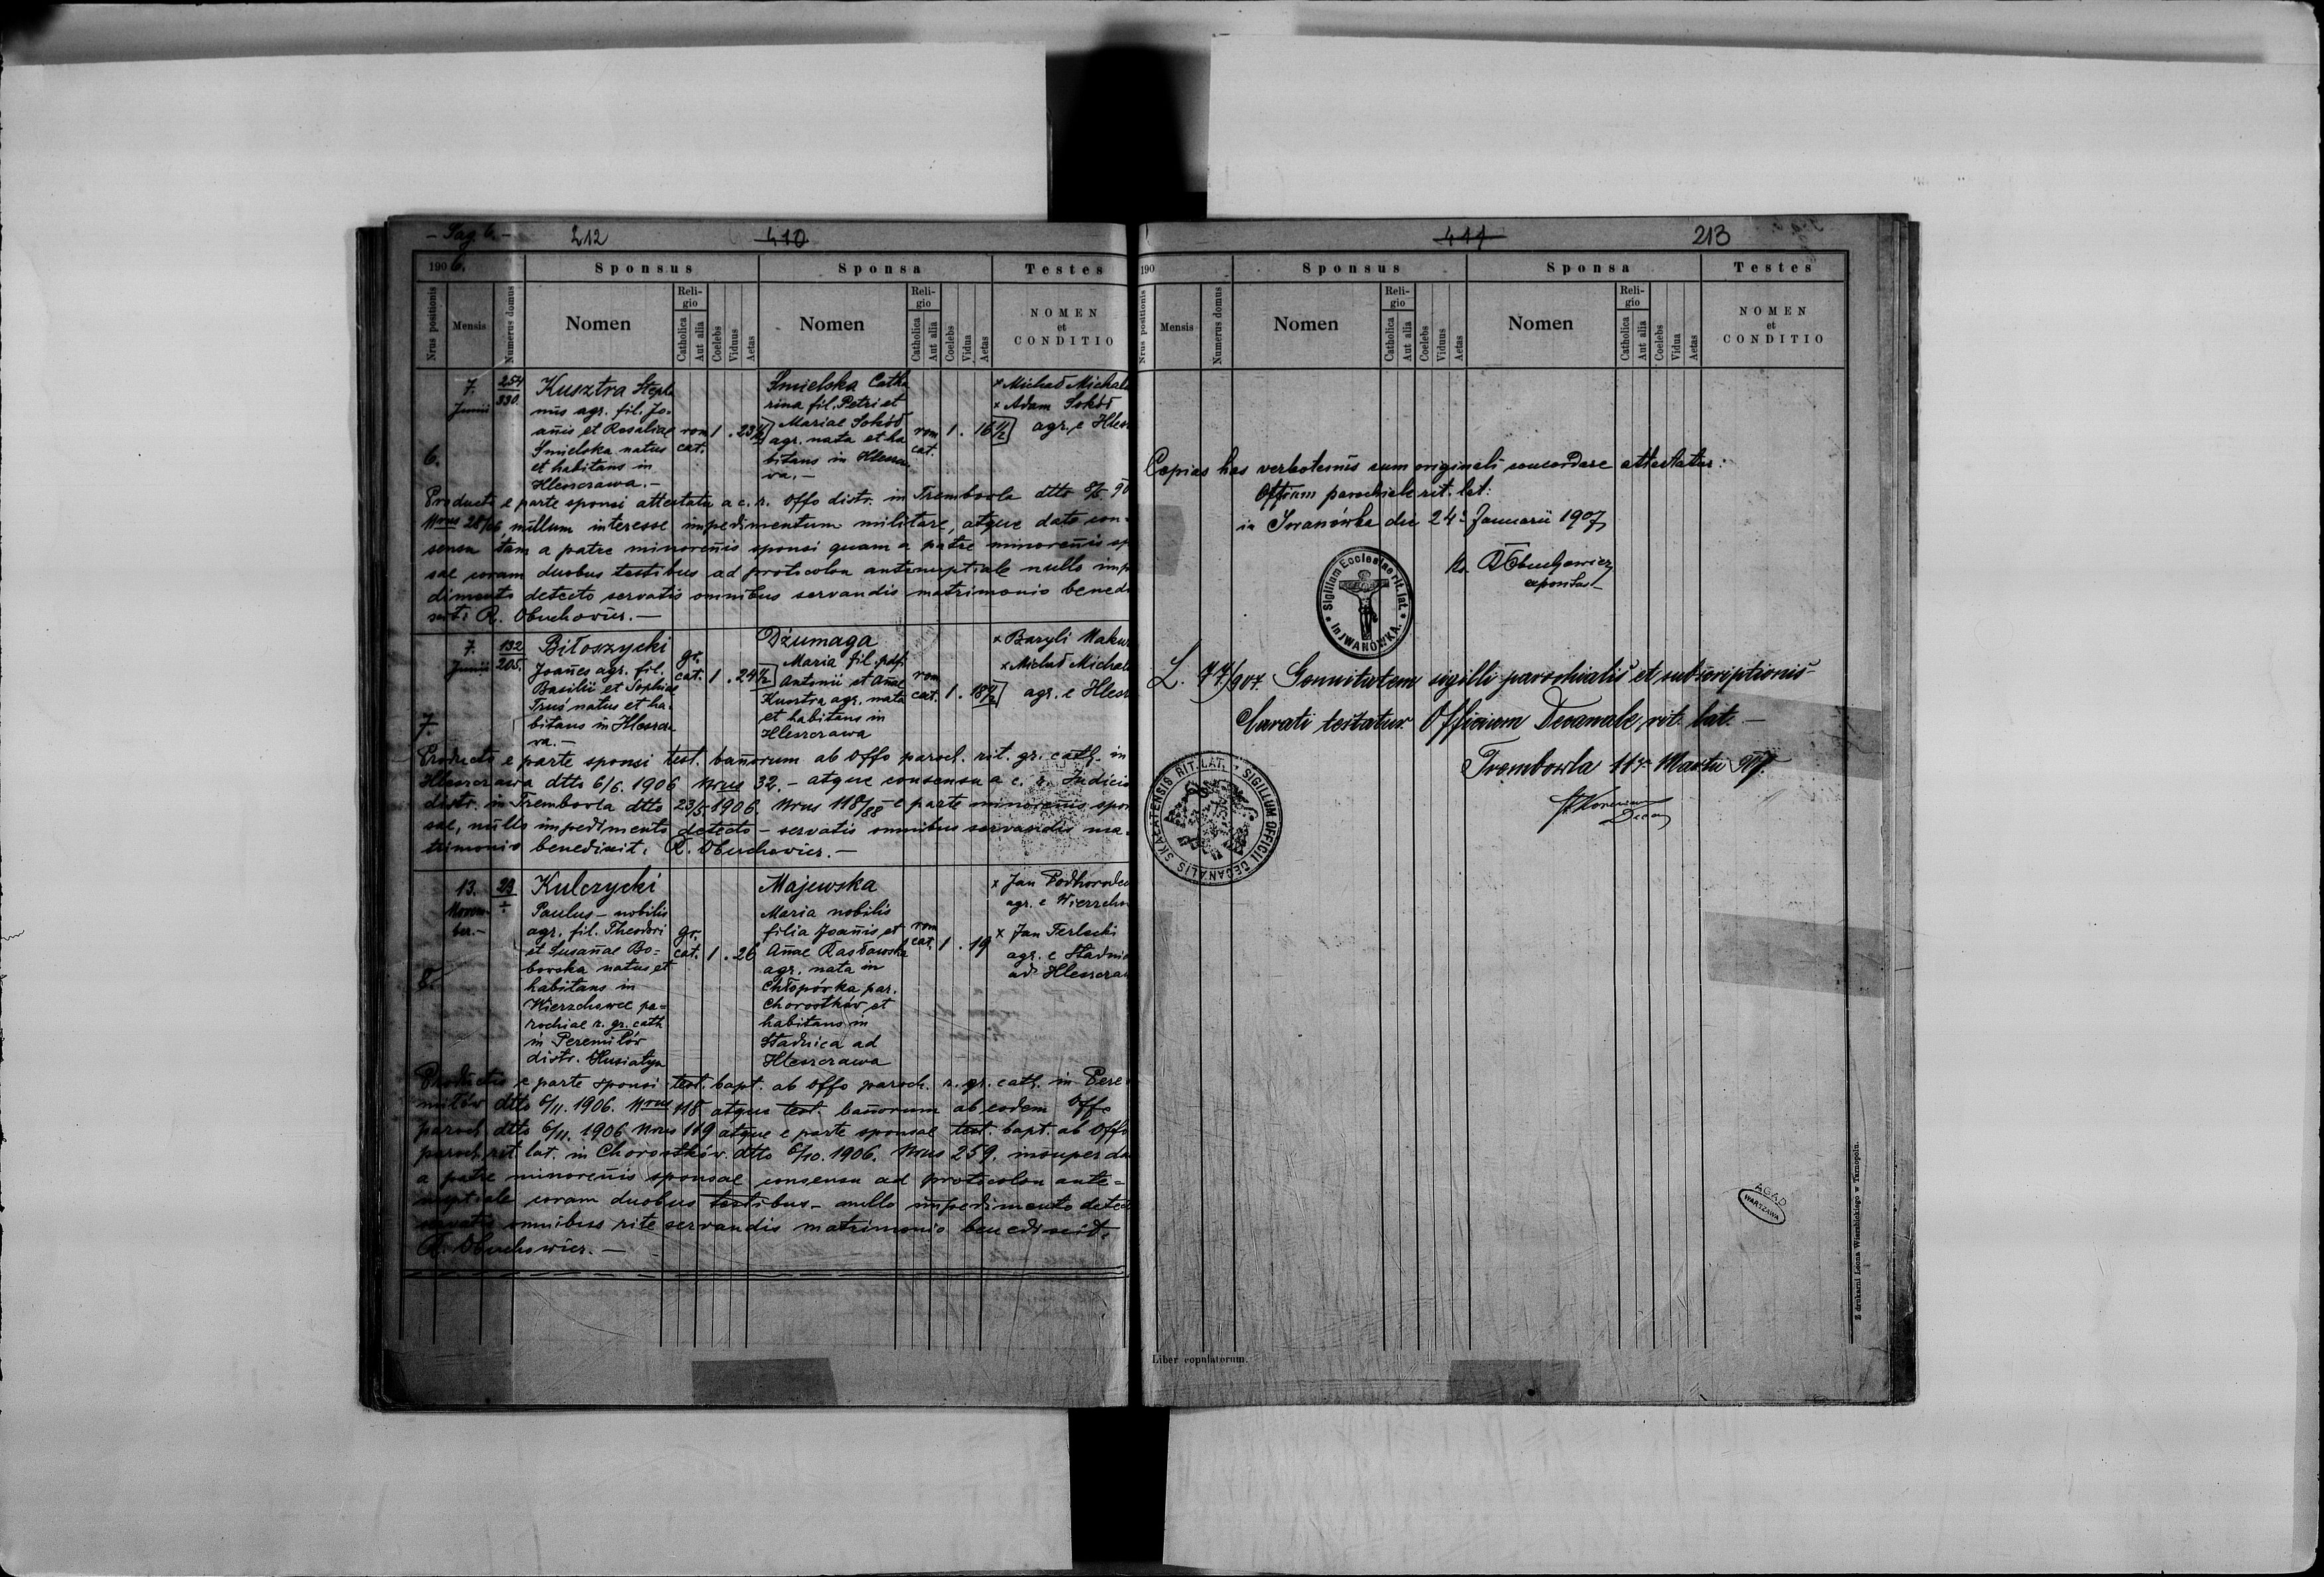 - Pag. 6. -
212
410
1906.
Sponsus
Sponsa
Testes
Nrus positionis
Mensis
Numerus domus
Nomen
Religio
Catholica
Aut alia
Coelebs
Viduus
Aetas
Nomen
Religio
Catholica
Aut alia
Coelebs
Vidua
Aetas
NOMEN
et
CONDITIO
6.
7.
Junii
254
330.
Kusztra Stepha
nus agr. fil. Jo-
anis et Rosaliae
Smielska natus
et habitans in
Hleszczawa. -
rom
cat.
1 . 23 1/2
Smielska Catha
rina fil. Petri et
Mariae Sokół
agr. nata et ha
bitans in Hleszcza
wa. -
rom
cat.
1 . 16 1/2
× Michał Michal
× Adam Sokół
agr. e Hlesz
Producto e parte sponsi attestatu a c. r. Offo distr. in Trembowla dtto 8/5 90
Nrus 28/06 nullum interesse impedimentum militare, atque dato con-
sensu tam a patre minorenis sponsi quam a patre minorenis sp
sae coram duobus testibus ad protocolon antenuptiale nullo imp
dimento detecto servatis omnibus servandis matrimonio benedi
xit: R. Obuchowicz. -
7.
7.
Junii
132
205.
Biłoszycki
Joanes agr. fil.
Basilii et Sophiae
Truś natus et ha-
bitans in Hleszcza
wa. -
gr.
cat.
1 . 24 1/2
Dżumaga
Maria fil. pdf.
Antonii et Anae
Kusztra agr. nata
et habitans in
Hleszczawa
rom
cat.
1 . 18 1/2
× Bazyli Maku
× Michał Michal
agr. e Hlesz
Producto e parte sponsi test. banorum ab Offo paroch. rit. gr. cath. in
Hleszczawa dtto 6/6. 1906 Nrus 32. - atque consensu a c. r. Judicio
distr. in Trembowla dtto 23/5 1906. Nrus 118/88 e parte minorenis spon
sae, nullo impedimento detecto - servatis omnibus servandis ma-
trimonio benedixit. R. Obuchowicz. -
8.
13.
Novem-
ber. -
29
÷
Kulczycki
Paulus - nobilis
agr. fil. Theodori
et Susanae Bo-
borska natus et
habitans in
Wierzchowce pa-
rochiae r. gr. cath
in Peremiłów
distr. Husiatyn
gr.
cat.
1 . 26
Majewska
Maria nobilis
filia Joanis et
Anae Rasławska
agr. nata in
Chłopówka par.
Chorostków et
habitans in
Stadnica ad
Hleszczawa
rom
cat.
1 . 19
× Jan Podhorode
agr. e Wierzcho
× Jan Terlecki
agr. e Stadni
ad Hleszcza
Productis e parte sponsi test. bapt. ab Offo paroch. r. gr. cath. in Pere
miłów dtto 6/11. 1906. Nrus 118 atque test. banorum ab eodem Offo
paroch. dtto 6/11. 1906 Nrus 119 atque e parte sponsae test. bapt. ab Offo
paroch. rit. lat. in Chorostków dtto 6/10. 1906. Nrus 259. insuper da
a patre minorenis sponsae consensu ad protocolon ante-
nuptiale coram duobus testibus - nullo impedimento detec
servatis omnibus rite servandis matrimonio benedixit.
R. Obuchowicz. -
411
213
190
Sponsus
Sponsa
Testes
Nrus positionis
Mensis
Numerus domus
Nomen
Religio
Catholica
Aut alia
Coelebs
Viduus
Aetas
Nomen
Religio
Catholica
Aut alia
Coelebs
Vidua
Aetas
NOMEN
et
CONDITIO
Copias has verbotenus cum originali concordare attestatur:
Officium parochiale rit. lat:
in Iwanówka die 24 Januarii 1907
Ks. R Obuchowicz
expositus
Sigillum Ecclesiae rit. lat. in JWANÓWKA.
L. 77/907. Genuitatem sigilli parochialis et subscriptionis
Curati testatur Officium Decanale rit. lat. -
Trembowla 11 Martii 907.
Decan
SIGILLUM OFFICII DECANALIS SKAŁATENSIS RIT. LAT.
AGAD
WARSZAWA
Liber copulatorum.
Z drukarni Leona Wierzbickiego w Tarnopolu.